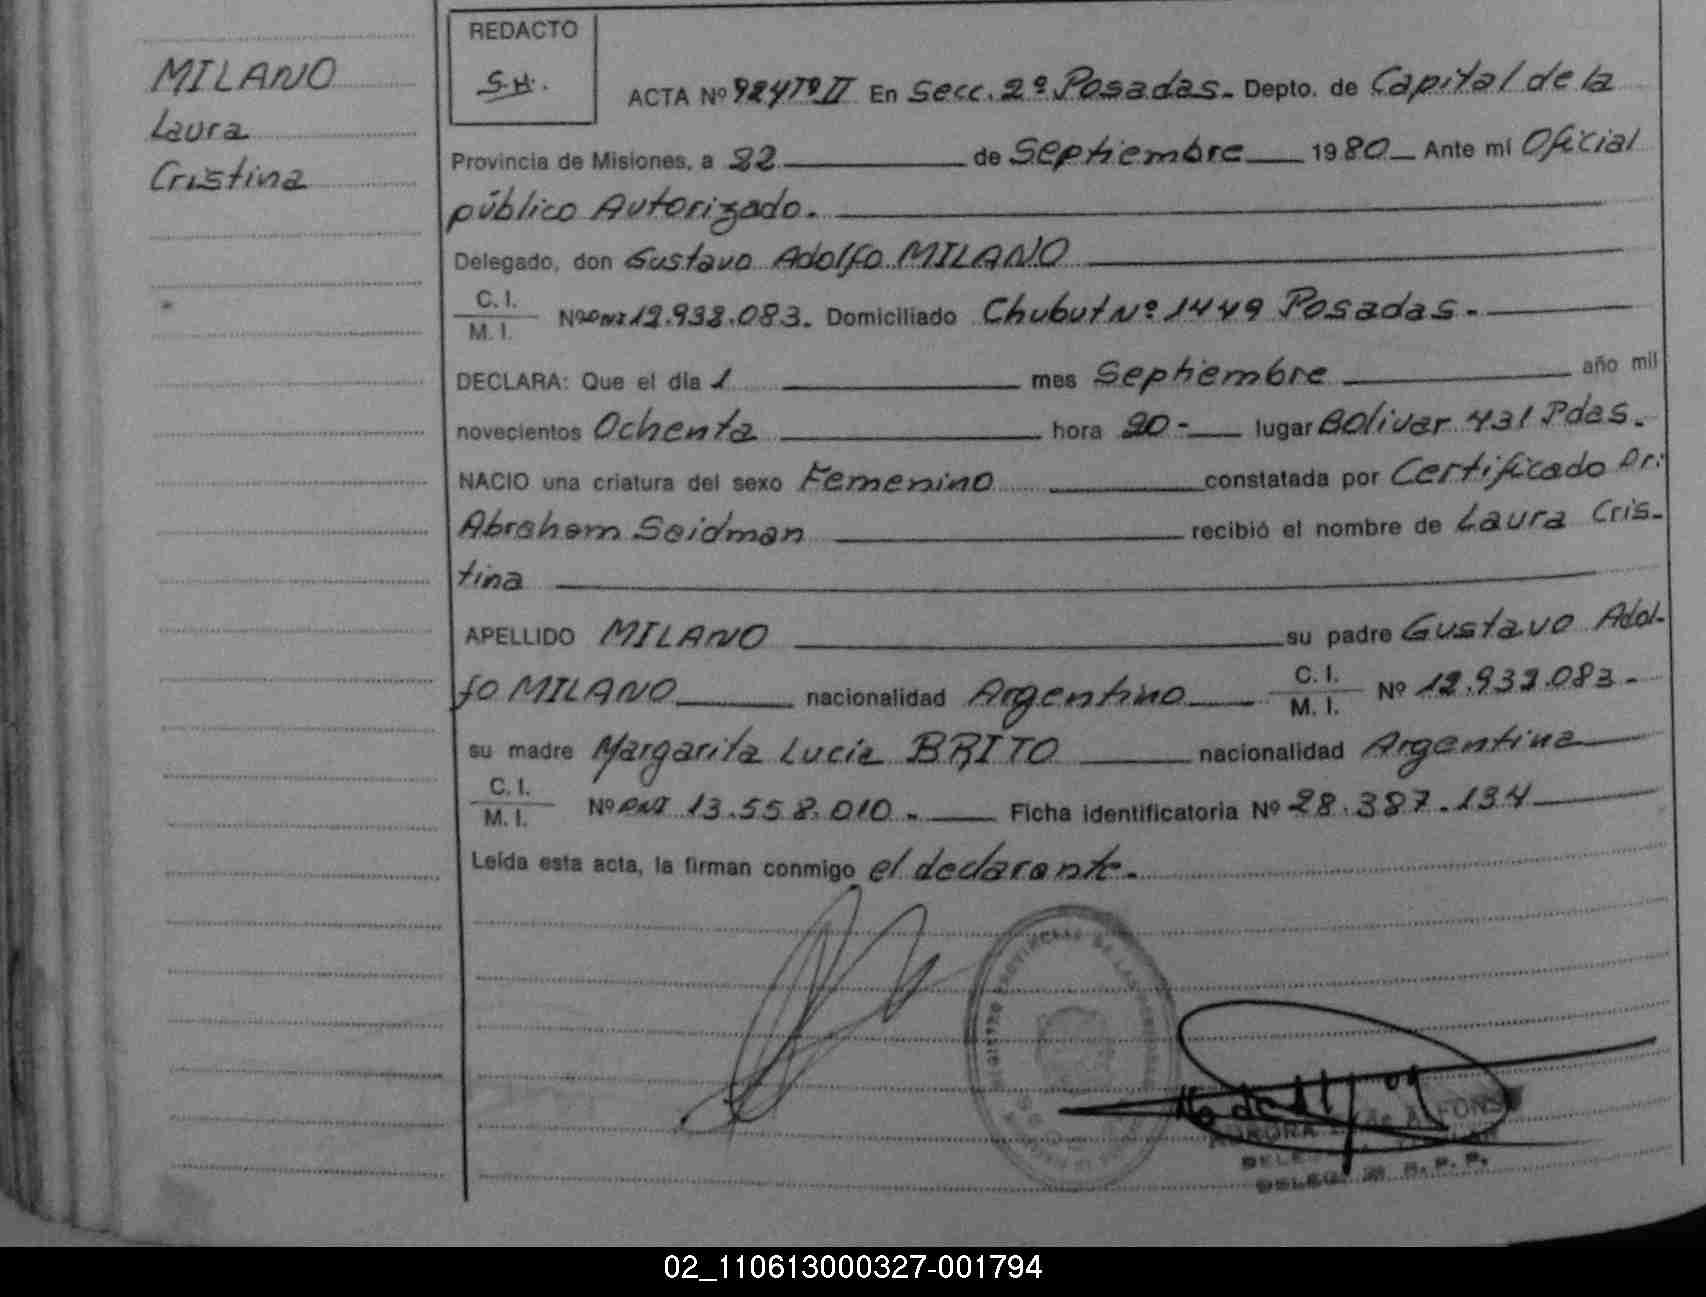 MILANO
Laura
Cristina
REDACTO
S.H.
ACTA Nº 924 Tº II En Secc. 2º Posadas. Depto. de Capital de la
Provincia de Misiones, a 22 de Septiembre 1980 Ante mí Oficial
público Autorizado.
Delegado, don Gustavo Adolfo MILANO
C. I.
M. I. Nº DNI 12.932.083. Domiciliado Chubut Nº 1449 Posadas.
DECLARA: Que el día 1 mes Septiembre año mil
novecientos Ochenta hora 20- lugar Bolivar 431 Pdas.
NACIO una criatura del sexo Femenino constatada por Certificado Dr:
Abraham Seidman recibió el nombre de Laura Cris-
tina
APELLIDO MILANO su padre Gustavo Adol-
fo MILANO nacionalidad Argentino C. I.
M. I. Nº 12.932.083.-
su madre Margarita Lucia BRITO nacionalidad Argentina
C. I.
M. I. Nº DNI 13.558.010.- Ficha identificatoria Nº 28.387.134
Leída esta acta, la firman conmigo el declarante.
REGISTRO PROVINCIAL DE LAS
AURORA de ALFONSO
R. P. P.
02_110613000327-001794